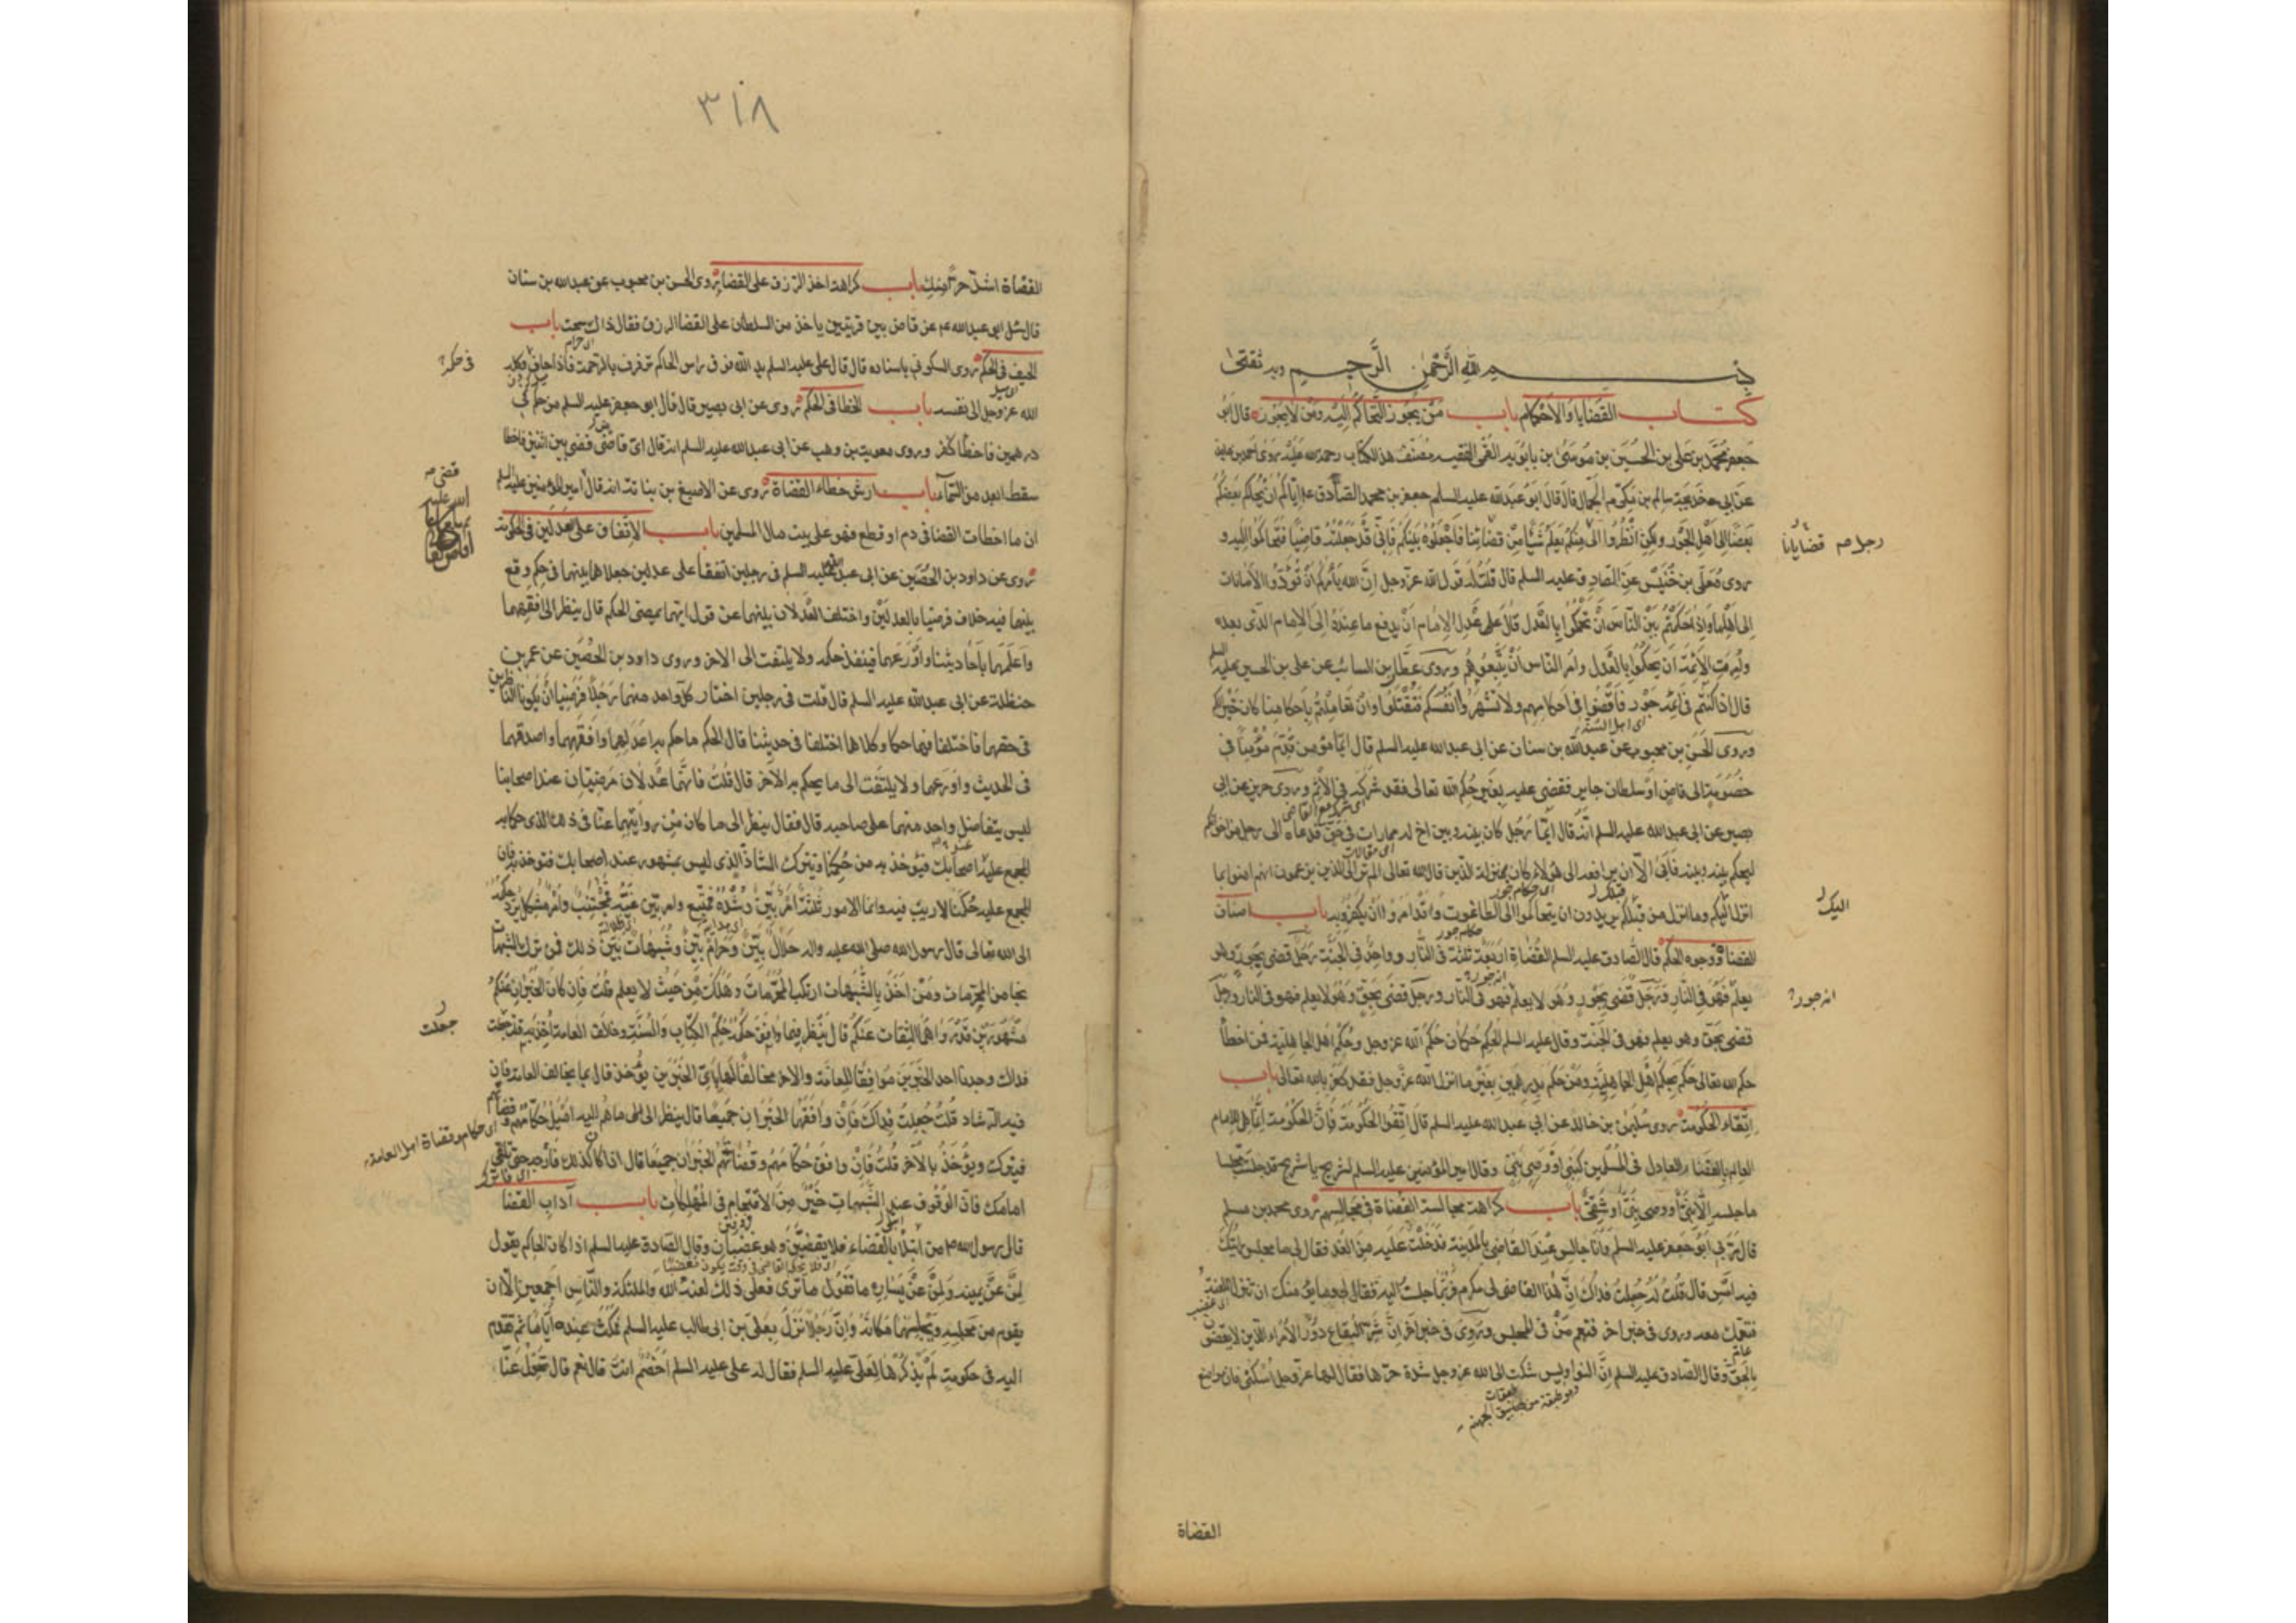 بسم الله الرحمن الرحيم وبه ثقتى
كتاب القضايا والاحكام باب من يجوز التحاكم اليه ومن لا يجوز قال ابو
جعفر محمد بن على بن الحسين بن موسى بن بابويه القمى الفقيه مصنف هذا الكتاب رحمة الله عليه روى احمد بن عايذ
عن ابى خديجة سالم بن مكرم الجمال قال قال ابو عبد الله عليه السلم جعفر بن محمد الصادق ع اياكم ان يحاكم بعضكم
بعضا الى اهل الجور ولكن انظروا الى منكم يعلم شيئا من قضائنا فاجعلوه بينكم فانى قد جعلته قاضيا فتحاكموا اليه و
رجل صم قضايانا
روى معلى بن خنيس عن الصادق عليه السلم قال قلت له قول الله عز وجل ان الله يأمركم ان تؤدوا الامانات
الى اهلها واذا حكمتم بين الناس ان تحكموا بالعدل قال على عدل الامام ان يدفع ما عنده الى الامام الذى بعده
وامرت الائمة ان يحكموا بالعدل وامر الناس ان يتبعوهم وروى عطا بن السائب عن على بن الحسين عليه السلم
قال اذا كنتم فى ائمة جور فاقضوا فى احكامهم ولا تشهروا انفسكم فتقتلوا وان تعاملتم باحكامنا كان خيرا لكم
وروى الحسن بن محبوب عن عبد الله بن سنان عن ابى عبد الله عليه السلم قال ايما مؤمن قدم مؤمنا فى
خصومة الى قاض او سلطان جاير فقضى عليه بغير حكم الله تعالى فقد شركه فى الاثم وروى حريز عن ابى
بصير عن ابى عبد الله عليه السلم انه قال ايما رجل كان بينه وبين اخ له ممارات فى حق فدعاه الى رجل من اخوانكم
ليحكم بينه وبينه فابى الا ان يرافعه الى هؤلاء كان بمنزلة الذين قال الله تعالى الم تر الى الذين يزعمون انهم امنوا بما
انزل اليكم وما انزل من قبلكم يريدون ان يتحاكموا الى الطاغوت وقد امروا ان يكفروا به باب اصناف
اليك
القضاة ووجوه الحكم قال الصادق عليه السلم القضاة اربعة ثلثة فى النار وواحد فى الجنة رجل قضى بجور وهو
يعلم فهو فى النار ورجل قضى بجور وهو لا يعلم فهو فى النار ورجل قضى بحق وهو لا يعلم فهو فى النار ورجل
انه جور
قضى بحق وهو يعلم فهو فى الجنة وقال عليه السلم الحكم حكمان حكم الله عز وجل وحكم اهل الجاهلية فمن اخطأ
حكم الله تعالى حكم بحكم اهل الجاهلية ومن حكم بدرهمين بغير ما انزل الله عز وجل فقد كفر بالله تعالى باب
اتقاء الحكومة روى سليمن بن خالد عن ابى عبد الله عليه السلم قال اتقوا الحكومة فان الحكومة انما هى للامام
العالم بالقضاء العادل فى المسلمين كنبى او وصى نبى وقال امير المؤمنين عليه السلم لشريح يا شريح قد جلست مجلسا
ما جلسه الا نبى او وصى نبى او شقى باب كراهة مجالسة القضاة فى مجالسهم روى محمد بن مسلم
قال مر بى ابو جعفر عليه السلم وانا جالس عند القاضى بالمدينة فدخلت عليه من الغد فقال لى ما مجلس رايتك
فيه امس قال قلت له جعلت فداك ان هذا القاضى لى مكرم فربما جلست اليه فقال لى وما يؤمنك ان تنزل اللعنة
فتعمك معه وروى فى خبر اخر فتعم من فى المجلس وروى فى خبر اخر ان شر البقاع دور الامراء الذين لا يقضون
بالحق وقال الصادق عليه السلم ان النواويس شكت الى الله عز وجل شدة حرها فقال لها عز وجل اسكنى فان مواضع
القضاة
٣١٨
القضاة اشد حرا منك باب كراهة اخذ الرزق على القضاء روى الحسن بن محبوب عن عبد الله بن سنان
قال سئل ابى عبد الله عم عن قاض بين قريتين ياخذ من السلطان على القضا الرزق فقال ذلك سحت باب
الحيف فى الحكم روى السكونى باسناده قال قال على عليه السلم يد الله فوق راس الحاكم ترفرف بالرحمة فاذا حاف وكله
فى حكمه
الله عز وجل الى نفسه باب الخطا فى الحكم روى عن ابى بصير قال قال ابو جعفر عليه السلم من حكم فى
درهمين فاخطأ كفر وروى معوية بن وهب عن ابى عبد الله عليه السلم انه قال اى قاض قضى بين اثنين فاخطا
سقط ابعد من السماء باب ارش خطاء القضاة روى عن الاصبغ بن نباته انه قال امير المؤمنين عليه السلم
قضى صم
ان ما اخطات القضا فى دم او قطع فهو على بيت مال المسلمين باب الاتفاق على عدلين فى الحكومة
روى عن داود بن الحصين عن ابى عبد الله عليه السلم فى رجلين اتفقا على عدلين جعلاهما بينهما فى حكم وقع
بينهما فيه خلاف فرضيا بالعدلين واختلف العدلان بينهما عن قول ايهما يمضى الحكم قال ينظر الى افقههما
واعلمهما باحاديثنا واورعهما فينفذ حكمه ولا يلتفت الى الاخر وروى داود بن الحصين عن عمر بن
حنظلة عن ابى عبد الله عليه السلم قال قلت فى رجلين اختار كل واحد منهما رجلا فرضيا ان يكونا الناظرين
فى حقهما فاختلفا فيما حكما وكلاهما اختلفا فى حديثنا قال الحكم ما حكم به اعدلهما وافقههما واصدقهما
فى الحديث واورعهما ولا يلتفت الى ما يحكم به الاخر قال قلت فانهما عدلان مرضيان عند اصحابنا
ليس يتفاضل واحد منهما على صاحبه قال فقال ينظر الى ما كان من روايتهما عنا فى ذلك الذى حكما به
المجمع عليه اصحابك فيؤخذ به من حكمنا ويترك الشاذ الذى ليس بمشهور عند اصحابك فتؤخذ به فان
المجمع عليه حكمنا لا ريب فيه وانما الامور ثلثة امر بين رشده فمتبع وامر بين غيه فمجتنب وامر مشكل يرد حكمه
الى الله تعالى قال رسول الله صلى الله عليه واله حلال بين وحرام بين وشبهات بين ذلك فمن ترك الشبهات
نجا من المحرمات ومن اخذ بالشبهات ارتكب المحرمات وهلك من حيث لا يعلم قلت فان كان الخبران عنكم
مشهورين قد رواهما الثقات عنكم قال ينظر فيما وافق حكمه حكم الكتاب والسنة وخالف العامة اخذ به قلت جعلت
جعلت
فداك وجدنا احد الخبرين موافقا للعامة والاخر مخالفا لها باى الخبرين يؤخذ قال بما يخالف العامة فان
فيه الرشاد قلت جعلت فداك فان وافقها الخبران جميعا قال ينظر الى ما هم اليه اميل حكامهم وقضاتهم
اى حكام وقضاة اهل العامة
فيترك ويؤخذ بالاخر قلت فان وافق حكامهم وقضاتهم الخبران جميعا قال اذا كان كذلك فارجه حتى تلقى
امامك فان الوقوف عند الشبهات خير من الاقتحام فى المهلكات باب آداب القضا
قال رسول الله ص من ابتلى بالقضاء فلا يقضين وهو غضبان وقال الصادق عليه السلم اذا كان الحاكم يقول
لمن عن يمينه ولمن عن يساره ما تقول ما ترى فعلى ذلك لعنة الله والملئكة والناس اجمعين الا ان
يقوم من مجلسه ويجلسهما مكانه وان رجلا نزل بعلى بن ابى طالب عليه السلم فمكث عنده اياما ثم تقدم
اليه فى حكومة لم يذكرها لعلى عليه السلم فقال له على عليه السلم اخصم انت قال نعم قال تحول عنا